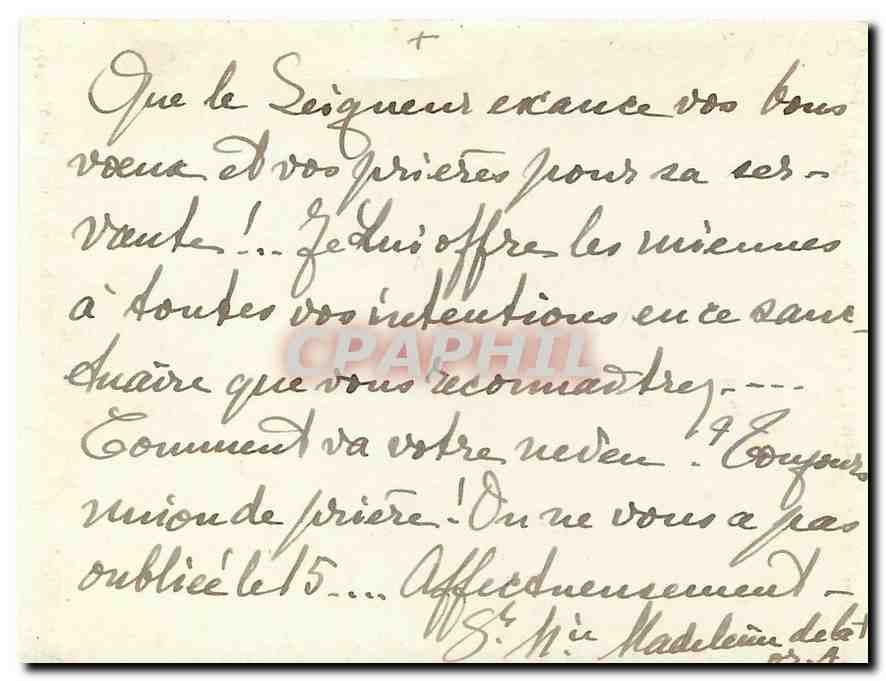 +
Que le Seigneur exauce vos bons
vœux et vos prières pour sa ser-
vante!... Je Lui offre les miennes
à toutes vos intentions en ce sanc-
tuaire que vous reconnaîtrez....
CPAPHIL
Comment va votre neveu ? Toujours
union de prière! On ne vous a pas
oubliée le 15.... Affectueusement -
Sr Mie Madeleine de la